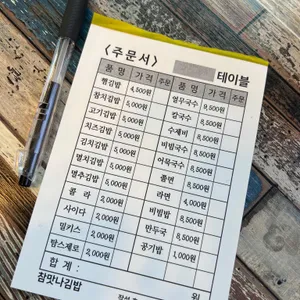 〈주문서〉
테이블
품 명 가 격 주문 품 명 가 격 주문
햄김밥 4,500원 열무국수 9,500원
참치김밥 5,000원 칼국수 8,500원
고기김밥 5,000원 수제비 8,500원
치즈김밥 5,000원 비빔국수 8,500원
김치김밥 5,000원 어묵국수 8,500원
멸치김밥 5,000원 쫄면 8,500원
멸추김밥 5,000원 라면 4,000원
콜 라 2,000원 비빔밥 8,500원
사이다 2,000원 만두국 8,500원
밀키스 2,000원 공기밥 1,000원
맘스제로 2,000원
합 계 : 원
참맛나김밥